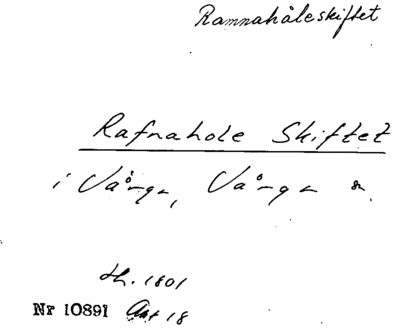 Ramnahåleskiftet
Rafnahole Skiftet
i Vånga, Vånga sn.
1801
Nr 10891 Akt 18